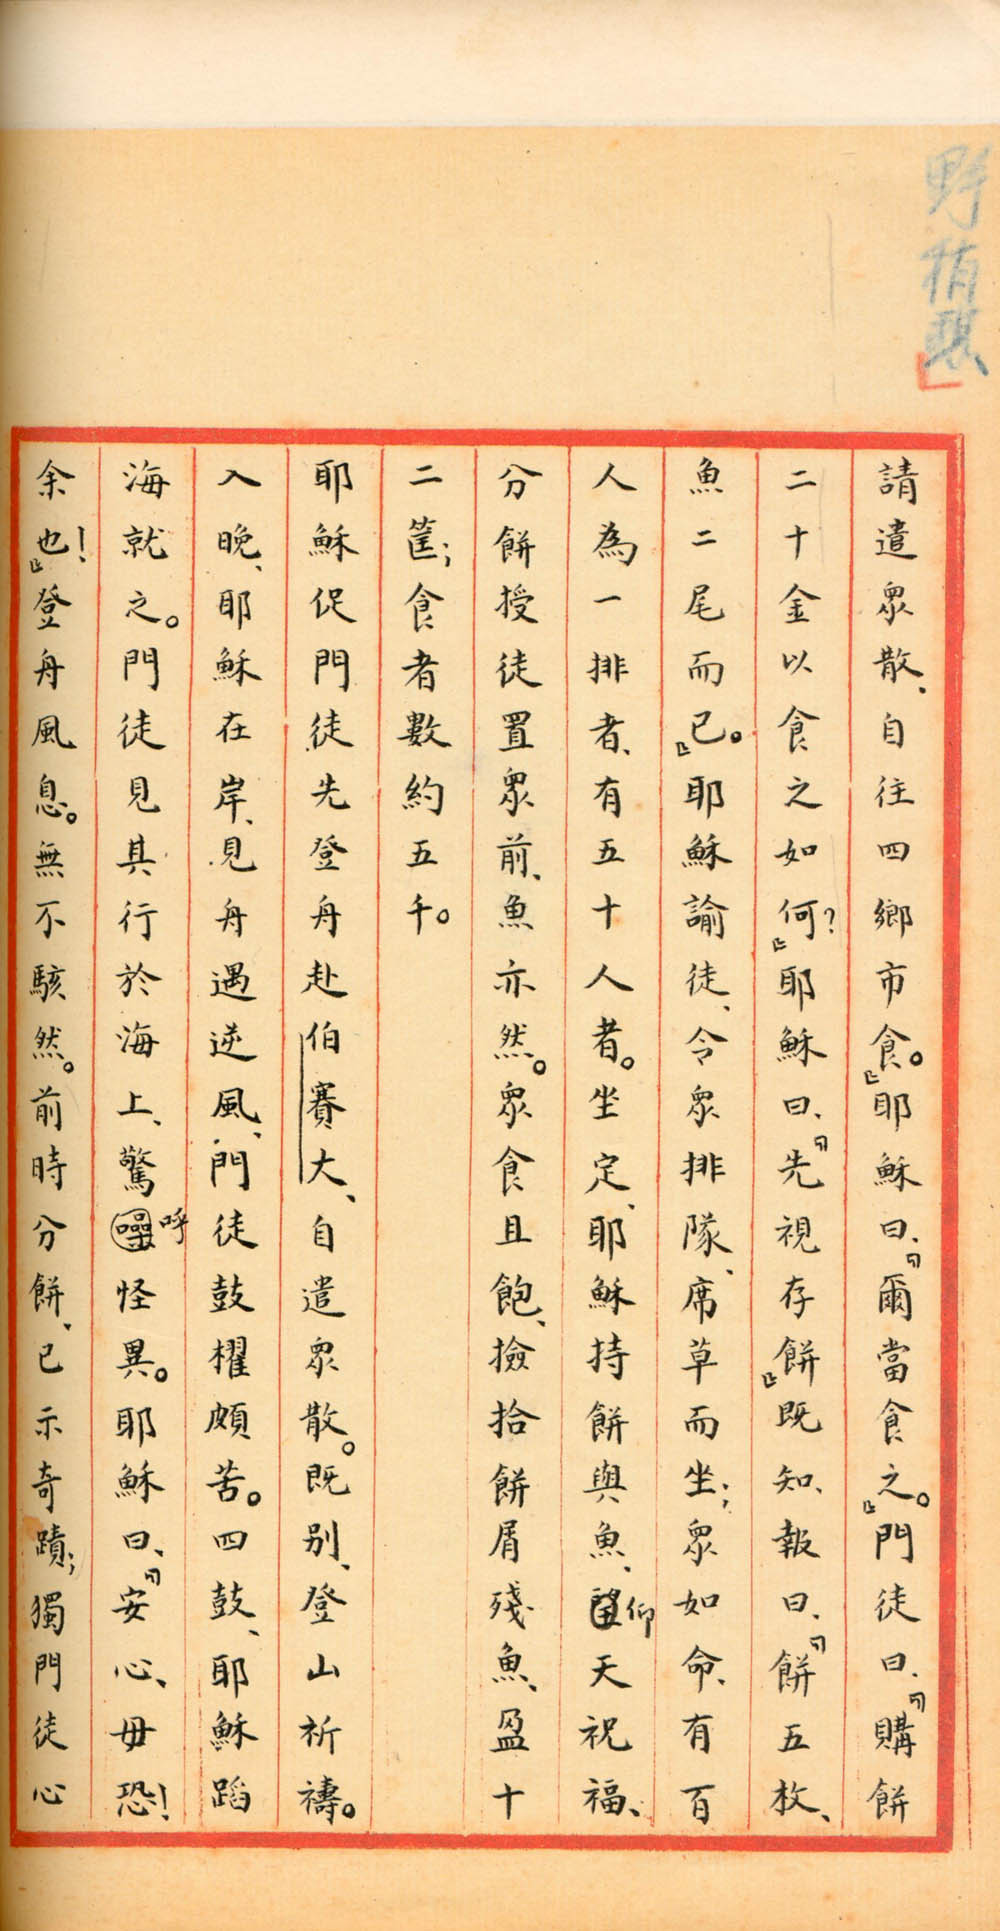 請遣眾散、自往四鄉市食。』耶穌曰、『爾當食之。』門徒曰、『購餅
二十金以食之如何？』耶穌曰、『先視存餅』既知、報曰、『餅五枚、
魚二尾而已。』耶穌諭徒、令眾排隊、席草而坐；眾如命、有百
人為一排者、有五十人者。坐定、耶穌持餅與魚、望仰天祝福、
分餅授徒置眾前、魚亦然。眾食且飽、撿拾餅屑殘魚、盈十
二筐；食者數約五千。
耶穌促門徒先登舟赴伯賽大、自遣眾散。既別、登山祈禱。
入晚、耶穌在岸、見舟遇逆風、門徒鼓櫂頗苦。四鼓、耶穌蹈
海就之。門徒見其行於海上、驚噪呼怪異。耶穌曰、『安心、毋恐！
余也！』登舟風息。無不駭然。前時分餅、已示奇蹟；獨門徒心